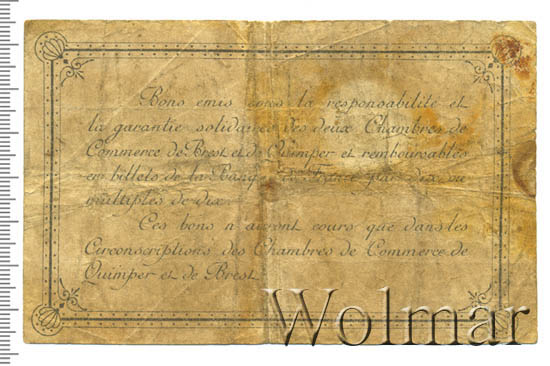 Bons émis sous la responsabilité et
la garantie solidaires des deux Chambres de
Commerce de Brest et de Quimper et remboursables
en billets de la Banque de France par dix ou
multiples de dix.
Ces bons n'auront cours que dans les
Circonscriptions des Chambres de Commerce de
Quimper et de Brest.
Wolmar